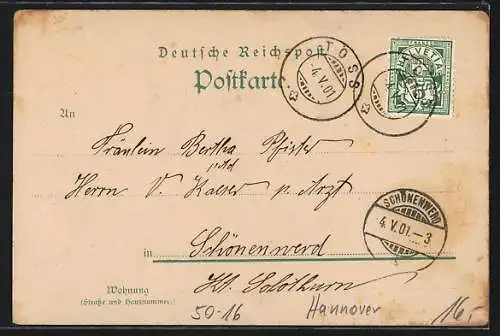 Deutsche Reichspost
Postkarte
TÖSS
-4.V.01
TÖSS
HELVETIA
FRANCO
An
Fräulein Bertha Pfister
p/Ad
Herrn V. Kaeser p. Arzt
SCHÖNENWERD
4.V.01.-3
in Schönenwerd
Kt. Solothurn
Wohnung
(Straße und Hausnummer)
50-16
Hannover
16,-